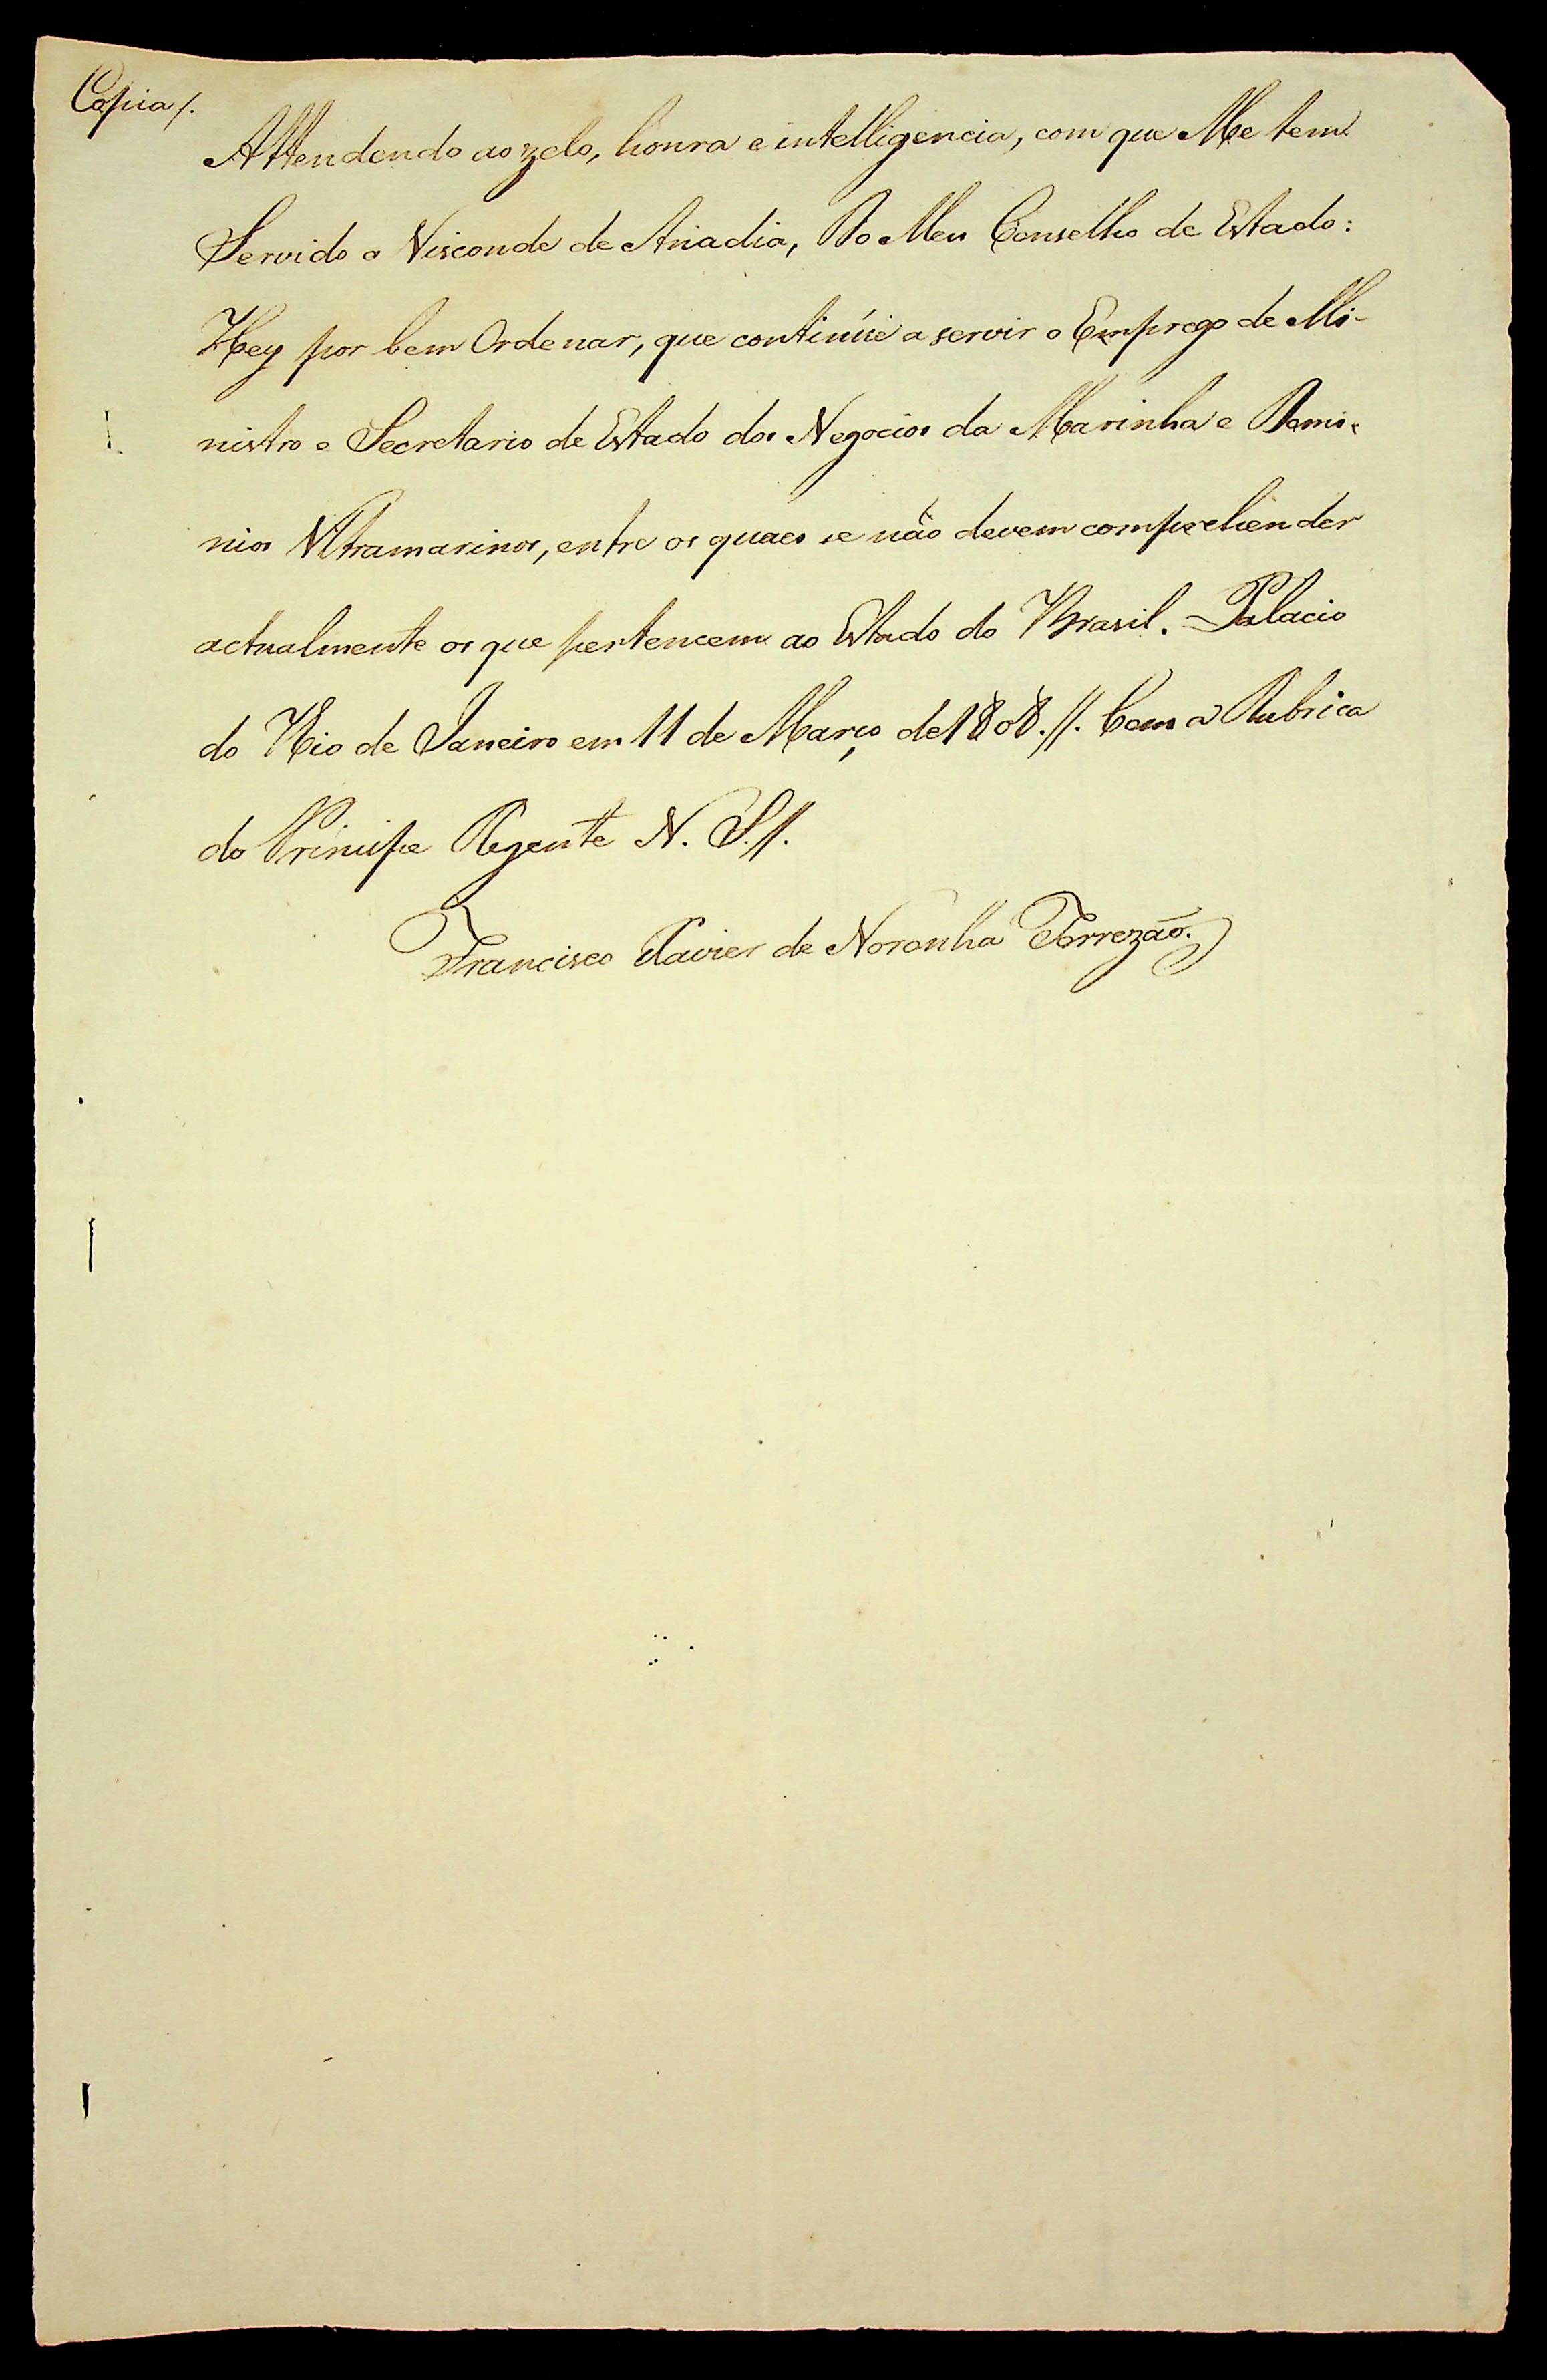 Copia /.
Attendendo ao zelo, honra e intelligencia, com que Me tem
Servido o Visconde de Anadia, Do Meu Conselho de Estado:
Hey por bem Ordenar, que continúe a servir o Emprego de Mi-
nistro e Secretario de Estado dos Negocios da Marinha e Domi-
nios Ultramarinos, entre os quaes se não devem comprehender
actualmente os que pertencem ao Estado do Brasil. Palacio
do Rio de Janeiro em 11 de Março de 1808.//. Com a Rubrica
do Principe Regente N. S.//.
Francisco Xavier de Noronha Torrezão.